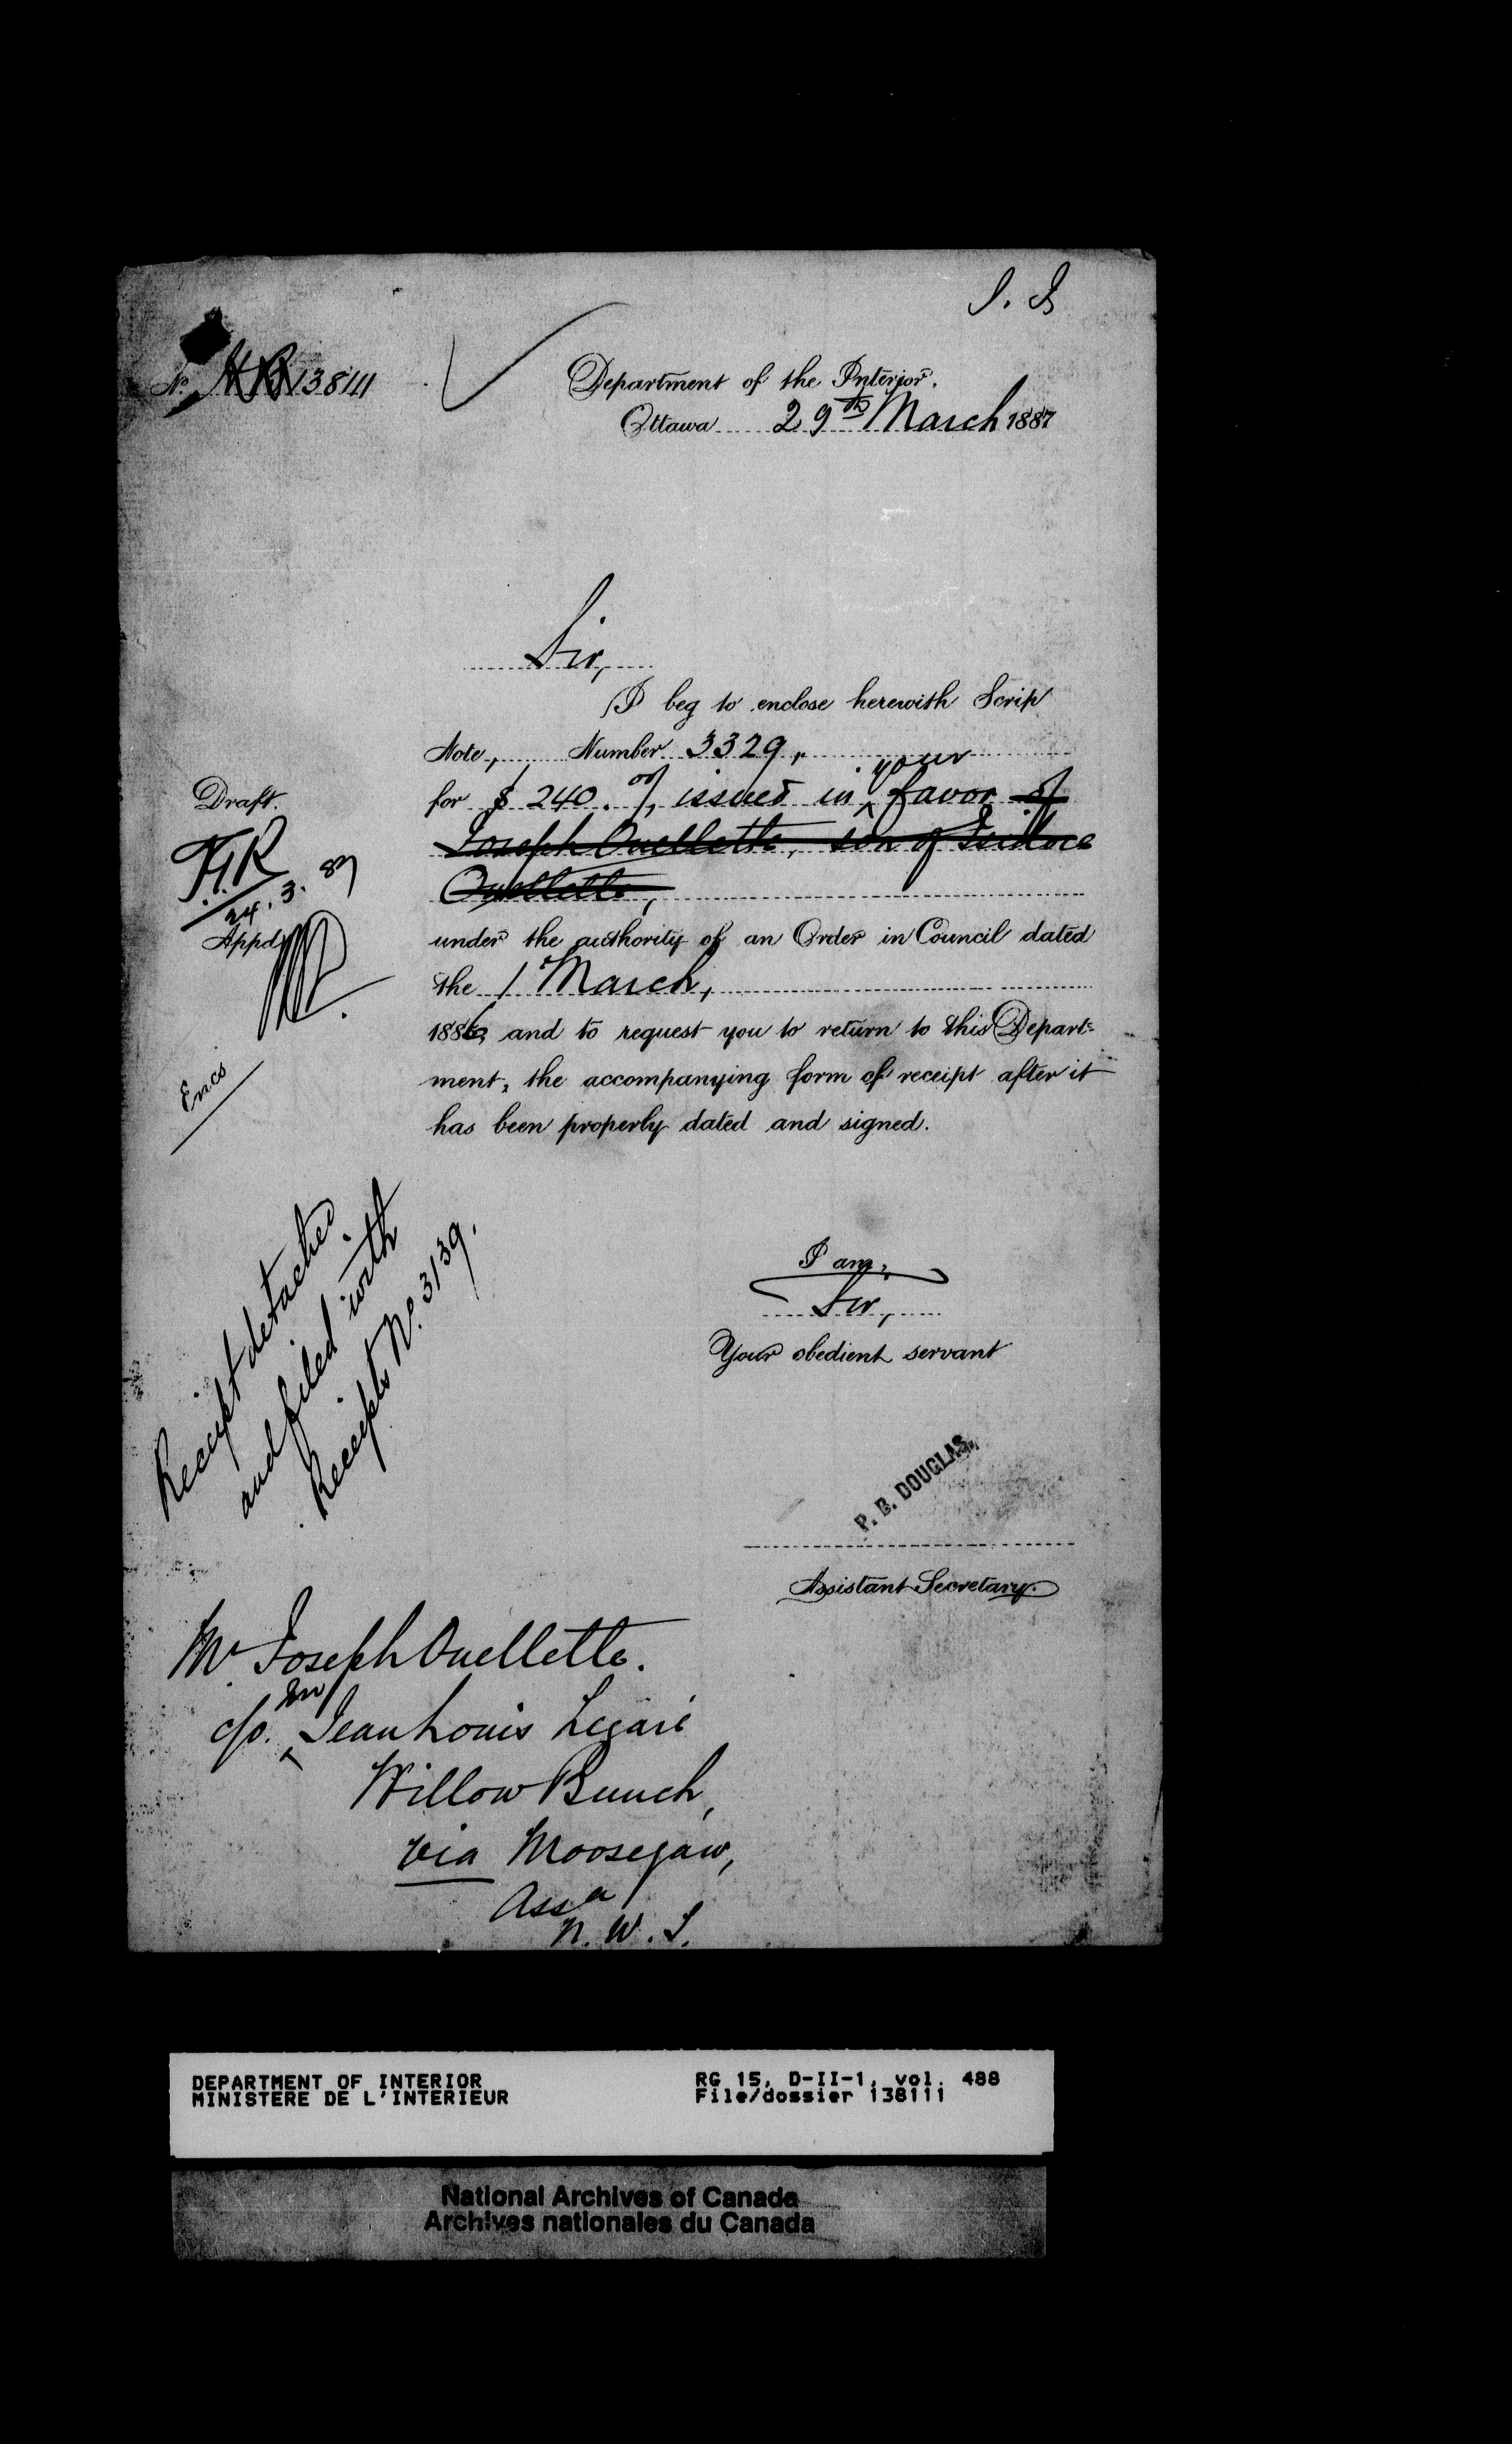 No. 138111
Department of the Interior,
Ottawa 29th March 1887
Sir,
I beg to enclose herewith Scrip
Note, Number 3329,
your
for $240.00/, issued in ^ favor of
Joseph Ouellette, son of
Ouellette,
under the authority of an Order in Council dated
the 1 March,
1886, and to request you to return to this Depart-
ment, the accompanying form of receipt after it
has been properly dated and signed.
Draft.
24.3.87
Appd
Encs
Receipt detached
and filed with
Receipts No. 3139.
I am,
Sir,
Your obedient servant
P. B. DOUGLAS,
Assistant Secretary.
Mr Joseph Ouellette.
c/o. ^ Jean Louis Legaré
Willow Bunch,
via Moosejaw,
Assa
N. W. T.
DEPARTMENT OF INTERIOR RG 15, D-II-1, vol. 488
MINISTERE DE L'INTERIEUR File/dossier 138111
National Archives of Canada
Archives nationales du Canada